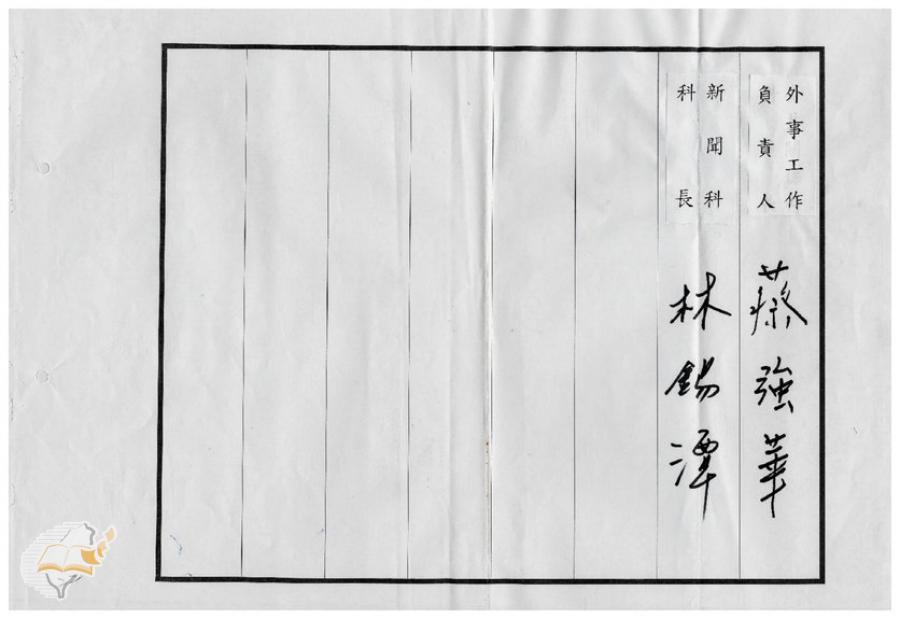 外事工作
負責人
蔡強華
新聞科
科長
林錫潭